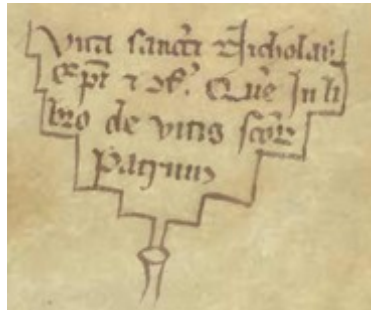 Vita sancti Nicholai
Ep̄i ⁊ ꝯf. Que In li
bro de vitis sc̄oꝝ
Patrum